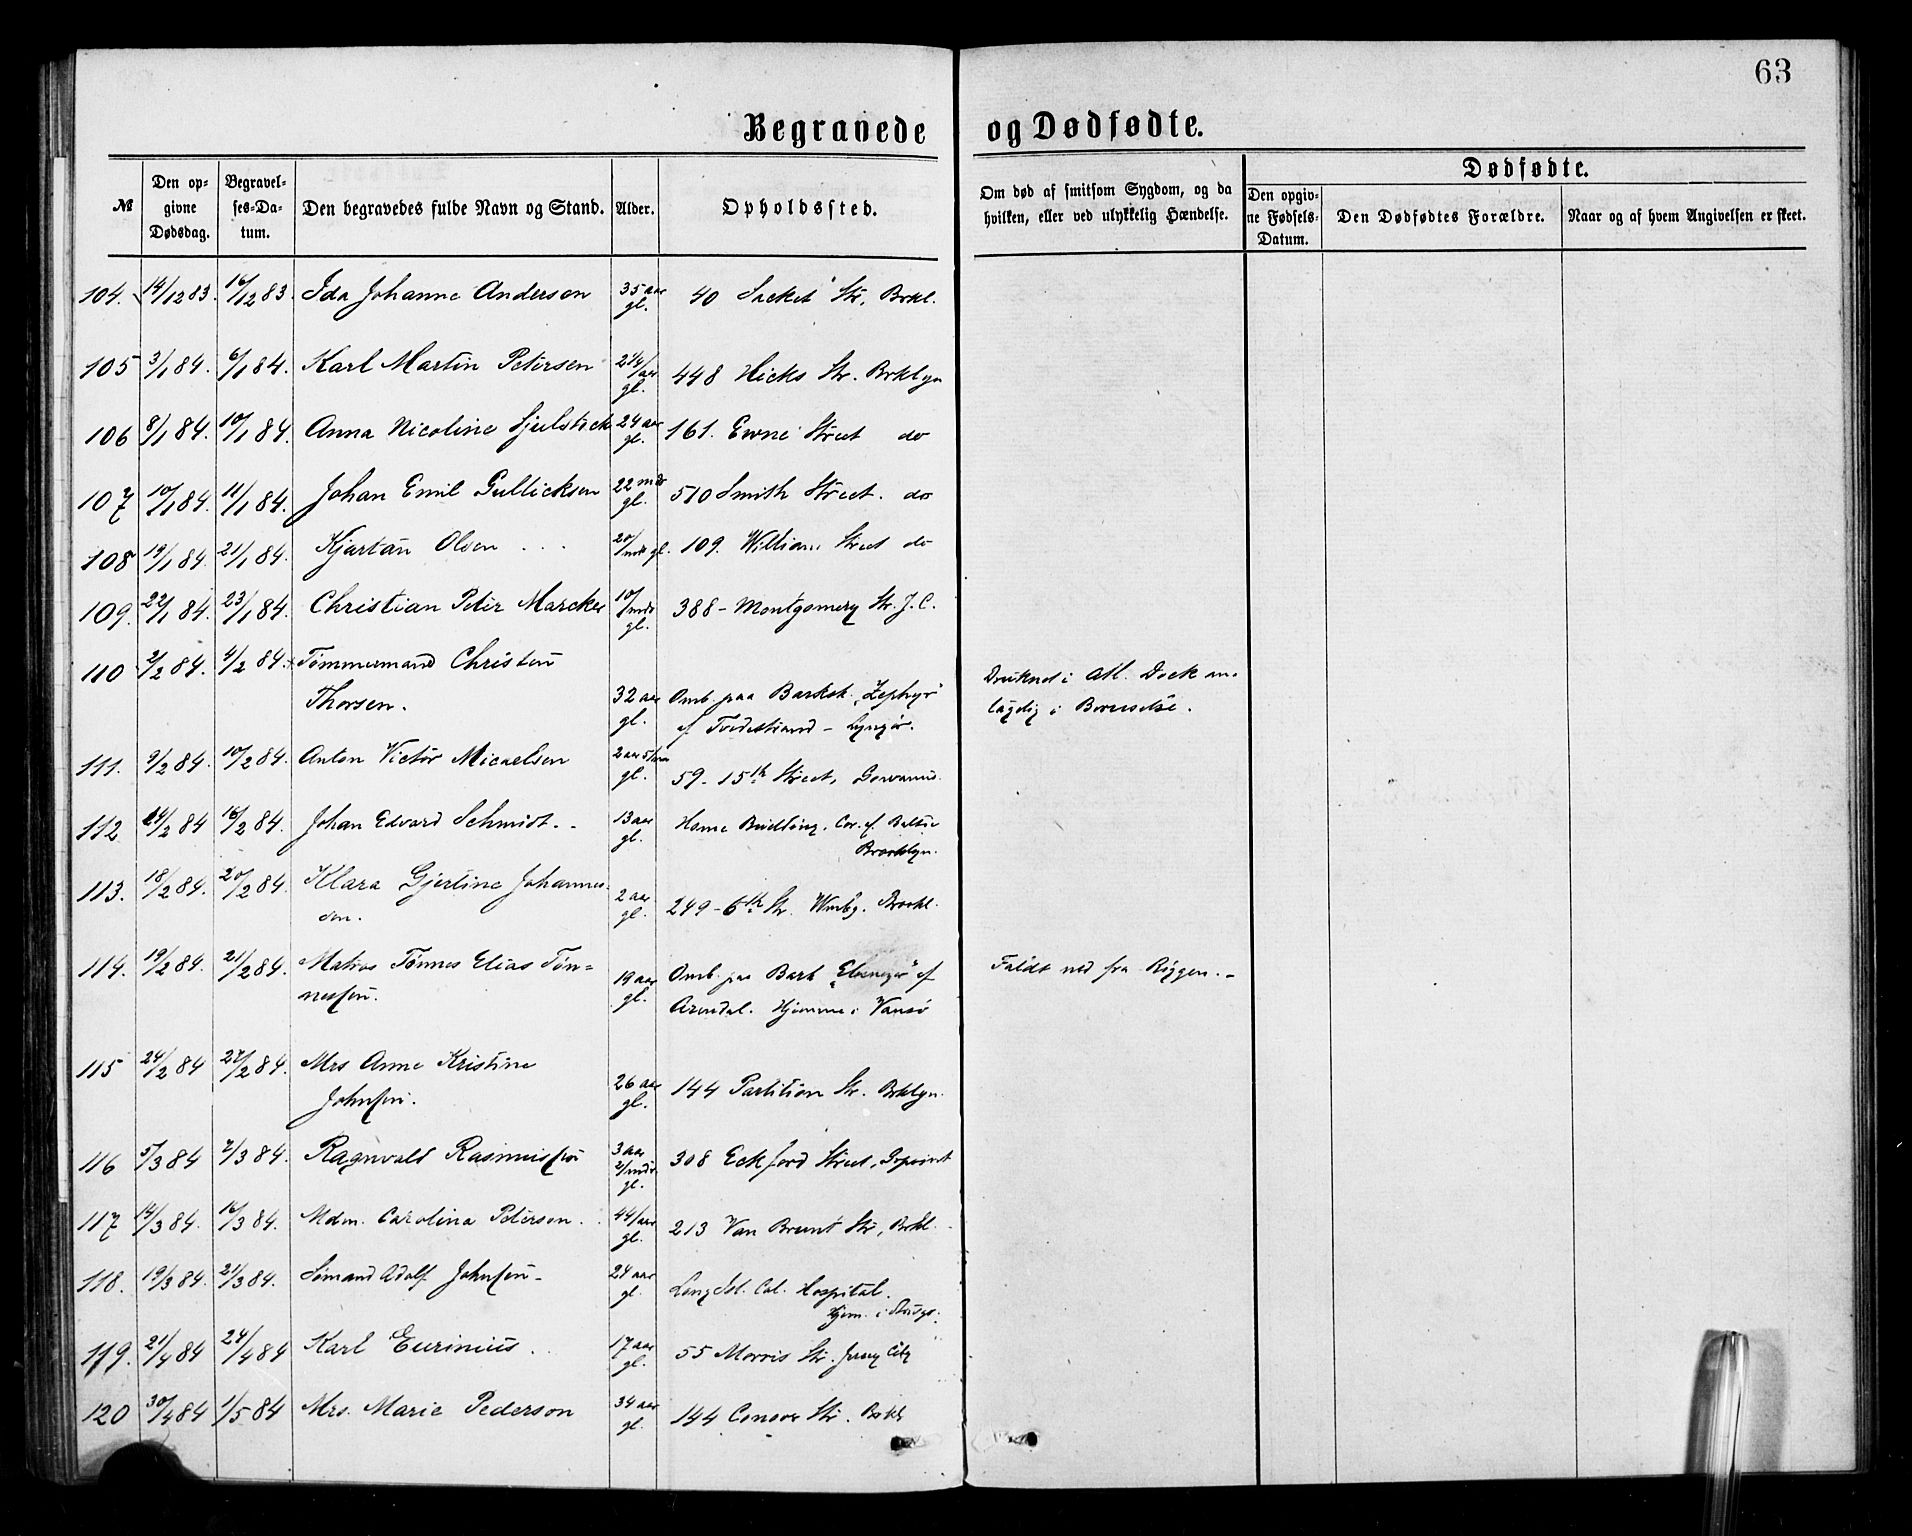 63
Begravede og Dødfødte.
№
Den opgivne Dødsdag.
Begravelses-Datum.
Den begravedes fulde Navn og Stand.
Alder.
Opholdssted.
Om død af smitsom Sygdom, og da hvilken, eller ved ulykkelig Hændelse.
Dødfødte.
Den opgivne Fødsels-Datum.
Den Dødfødtes Forældre.
Naar og af hvem Angivelsen er skeet.
104. 14/12 83. 16/12 83. Ida Johanne Andersen 35 aar gl. 40 Sacket Str, Brkl.
105 3/1 84. 6/1 84. Karl Martin Petersen 2 1/4 aar gl. 448 Hicks Str. Brklyn
106 8/1 84. 10/1 84. Anna Nicoline 24 aar gl. 161. Street do
107 10/1 84. 11/1 84. Johan Emil Gullicksen 22 mdr gl. 510 Smith Street. do
108 19/1 84. 21/1 84. Kjartan Olsen 20/mdr gl. 109. William Street do
109. 22/1 84. 23/1 84. Christian Peter Marcker 10/mdr gl. 388 - Montgomery Str. J. C.
110 2/2 84. 4/2 84. Tømmermand Christen
Thorsen. 32 aar gl. Omb. paa Barksk. "Zephyr" Druknet i Atl. Dock an-
af Tvedestrand - Lyngør. tagelig i Beruselse.
111. 9/2 84. 10/2 84. Anton Victor Micaelsen 2 aar 5/mdr gl. 59 - 15th Street, Gowanus.
112 14/2 84 16/2 84. Johan Edvard Schmidt. - 13 aar gl. Home Buildling, Cor. of Baltic
Brooklyn.
113. 18/2 84. 20/2 84. Klara Gjertine Johannes-
sen. 2 aar gl. 249 - 6th Str. Wmbg. Brookl.
114. 19/2 84. 21/2 84. Matros Tønnes Elias Tøn- 19 aar gl. Omb. paa Bark "Ebenezer" af Faldt ned fra Riggen. -
nessen. Arendal. Hjemme i Vansø
115 24/2 84 27/2 84. Mrs Anne Kristine
Johnsen. 26 aar gl. 144 Partition Str. Brklyn.
116 5/3 84 7/3 84. Ragnvald Rasmussen 3 aar 2/mdr gl. 308 Eckford Street, Grpoint
117 14/3 84. 16/3 84. Mdm. Carolina Peterson. 44/aar gl. 213 Van Brunt Str, Brkl.
118. 19/3 84. 21/3 84. Sømand Adolf Johnsen - 24 aar gl. Long Isl. Col. Hospital.
Hjem. i
119. 21/4 84 24/4 84 Karl Eurinius. 17 aar gl. 55 Morris Str. Jersey City
120 30/4 84 1/5 84 Mrs. Marie Pederson 34 aar gl. 144 Conover Str. Brkl